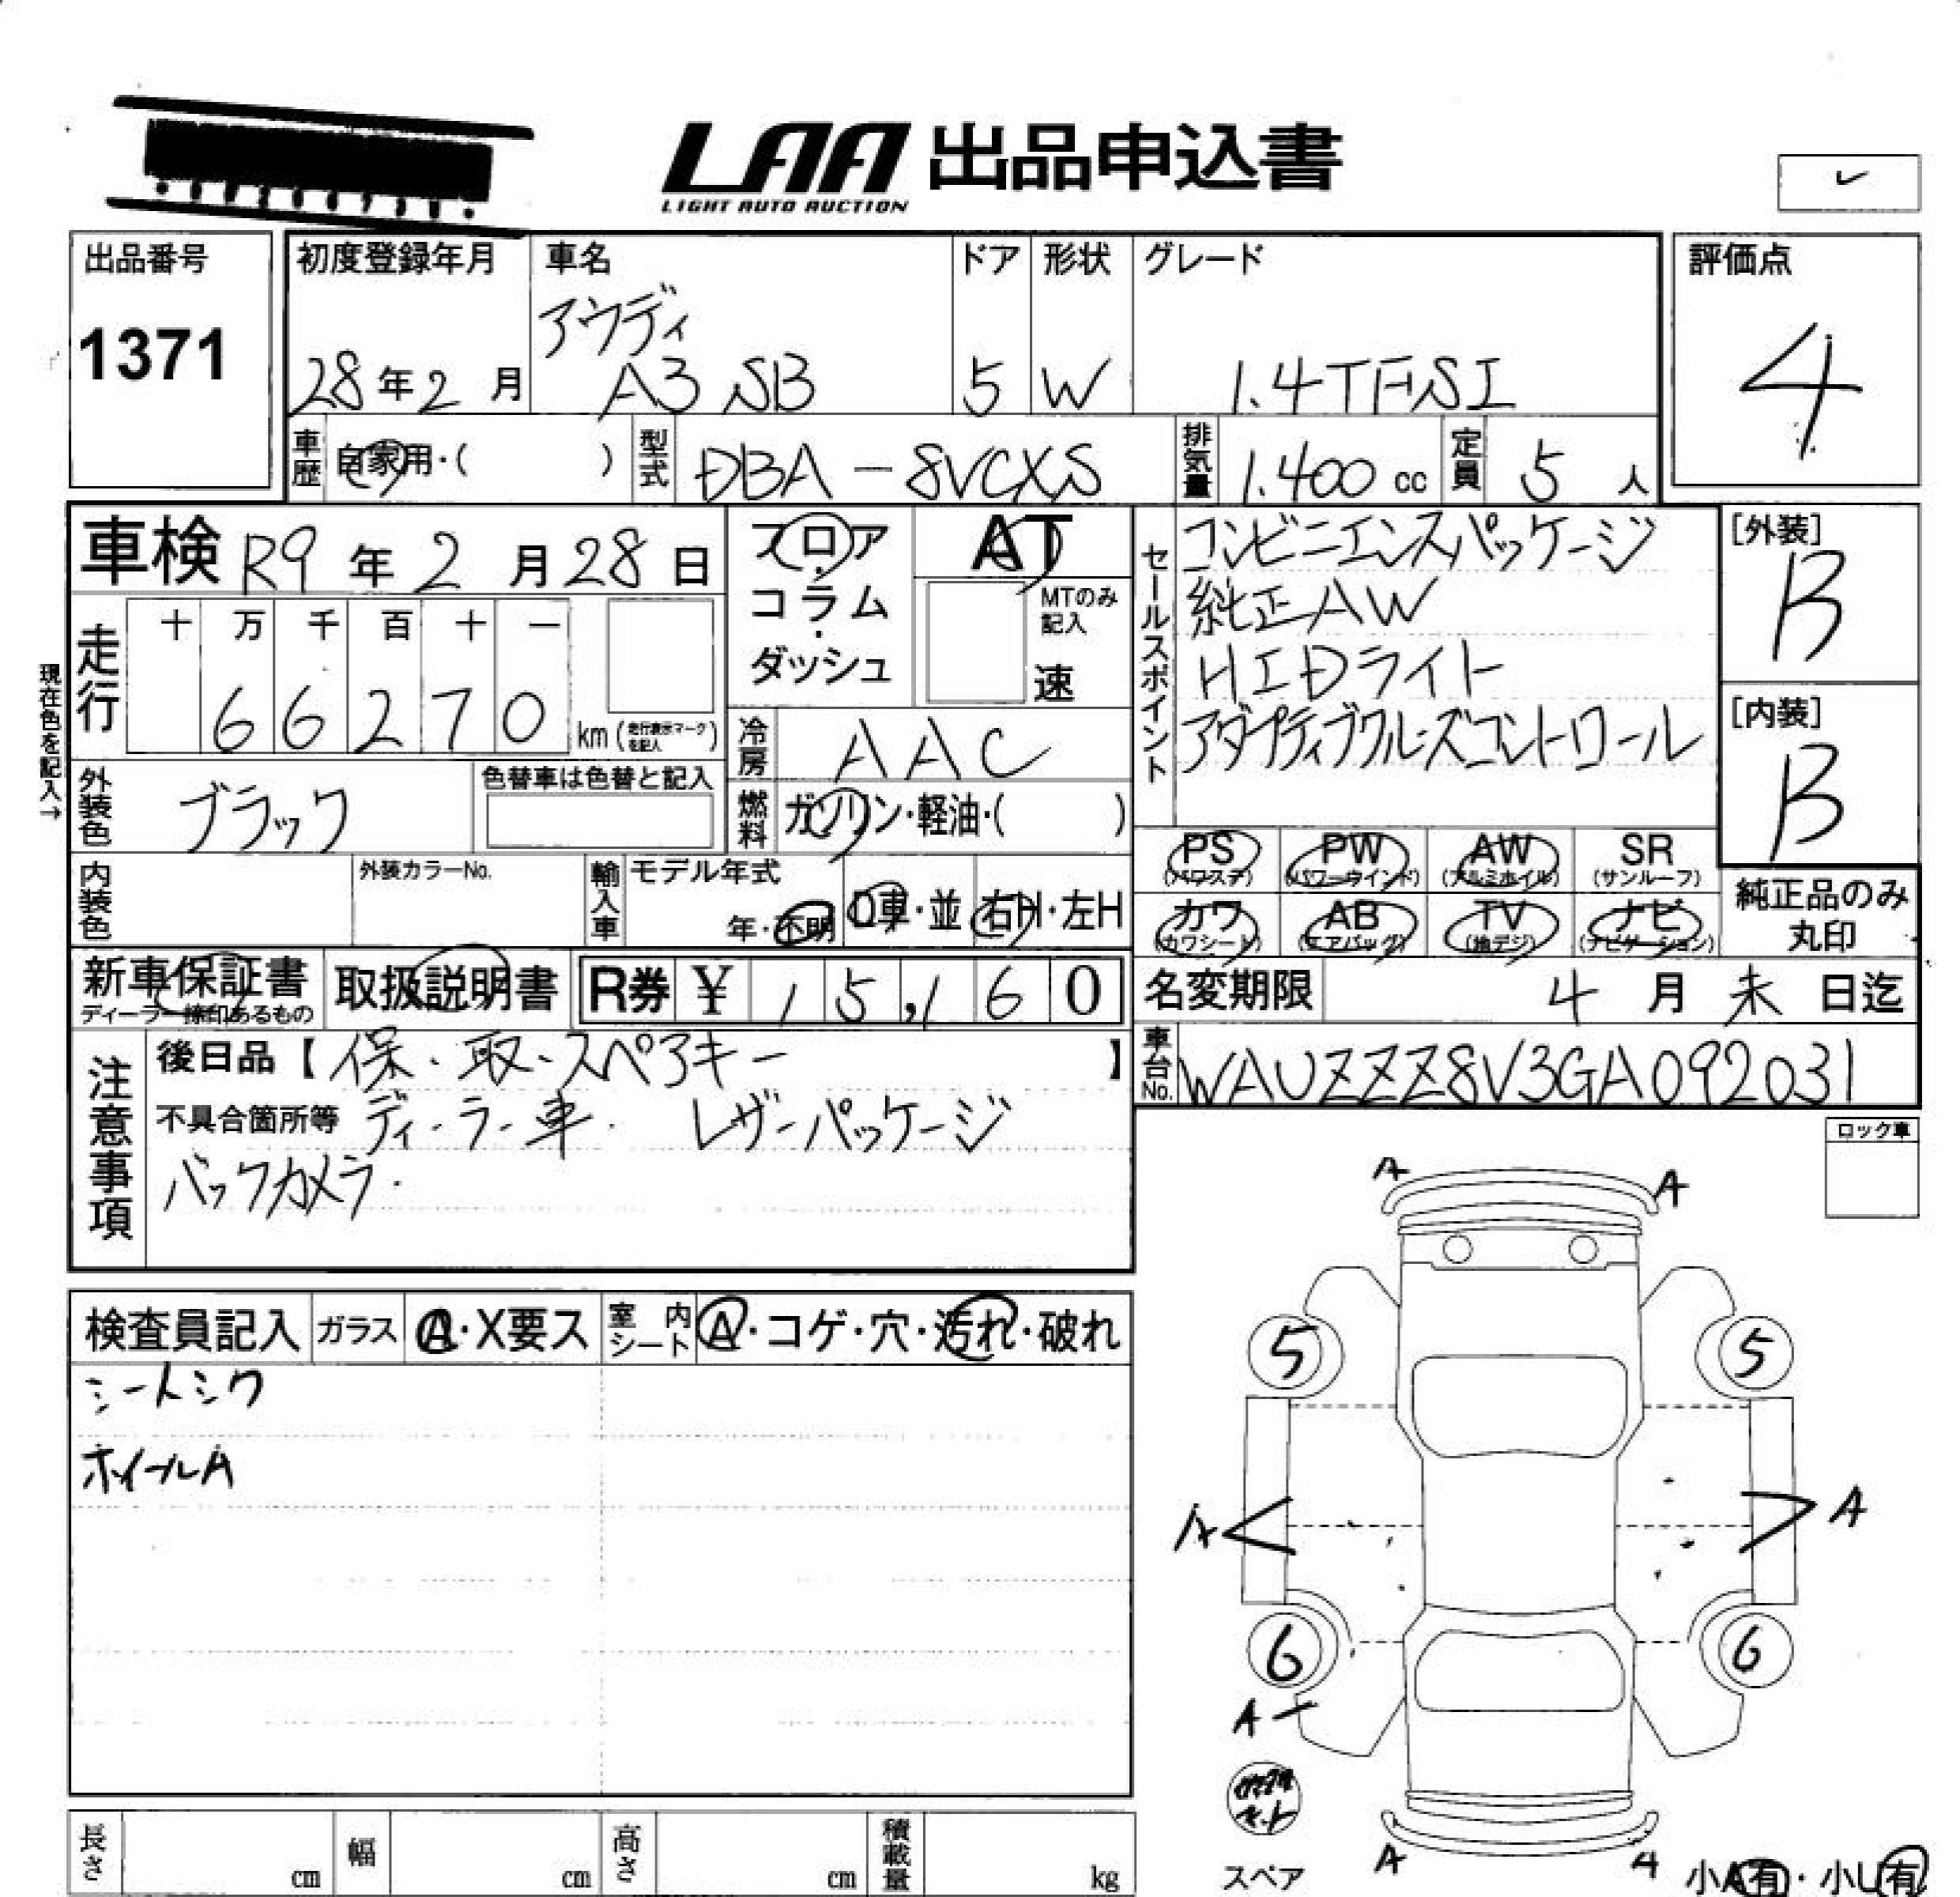 LAA 出品申込書
LIGHT AUTO AUCTION
出品番号
1371
初度登録年月
28年2月
車名
アウディ
A3 SB
ドア
5
形状
W
グレード
1.4TFSI
評価点
4
車歴
自家用・( )
型式
DBA-8VCXS
排気量
1.400 cc
定員
5 人
車検 R9年2月28日
現在色を記入→
走行
十 万 千 百 十 一
6 6 2 7 0 km (走行表示マークを記入)
フロア・コラム・ダッシュ
AT
MTのみ記入
速
冷房
AAC
燃料
ガソリン・軽油・( )
セールスポイント
コンビニエンスパッケージ
純正AW
HIDライト
アダプティブクルーズコントロール
[外装]
B
[内装]
B
外装色
ブラック
色替車は色替と記入
内装色
外装カラーNo.
輸入車
モデル年式
年・不明
D車・並
右H・左H
PS
(パワステ)
PW
(パワーウインド)
AW
(アルミホイル)
SR
(サンルーフ)
カワ
(カワシート)
AB
(エアバッグ)
TV
(地デジ)
ナビ
(ナビゲーション)
純正品のみ
丸印
新車保証書
ディーラー捺印あるもの
取扱説明書
R券 ¥ 15,160
名変期限 4月末日迄
車台No.
WAUZZZ8V3GA092031
注意事項
後日品【保・取・スペアキー】
不具合箇所等 ディーラー車. レザーパッケージ
バックカメラ.
ロック車
検査員記入
ガラス
A・X要ス
室内シート
A・コゲ・穴・汚れ・破れ
シートシワ
ホイールA
A
A
5
5
A
A
6
6
A
スペア
A
A
小A有・小U有
長さ
cm
幅
cm
高さ
cm
積載量
kg